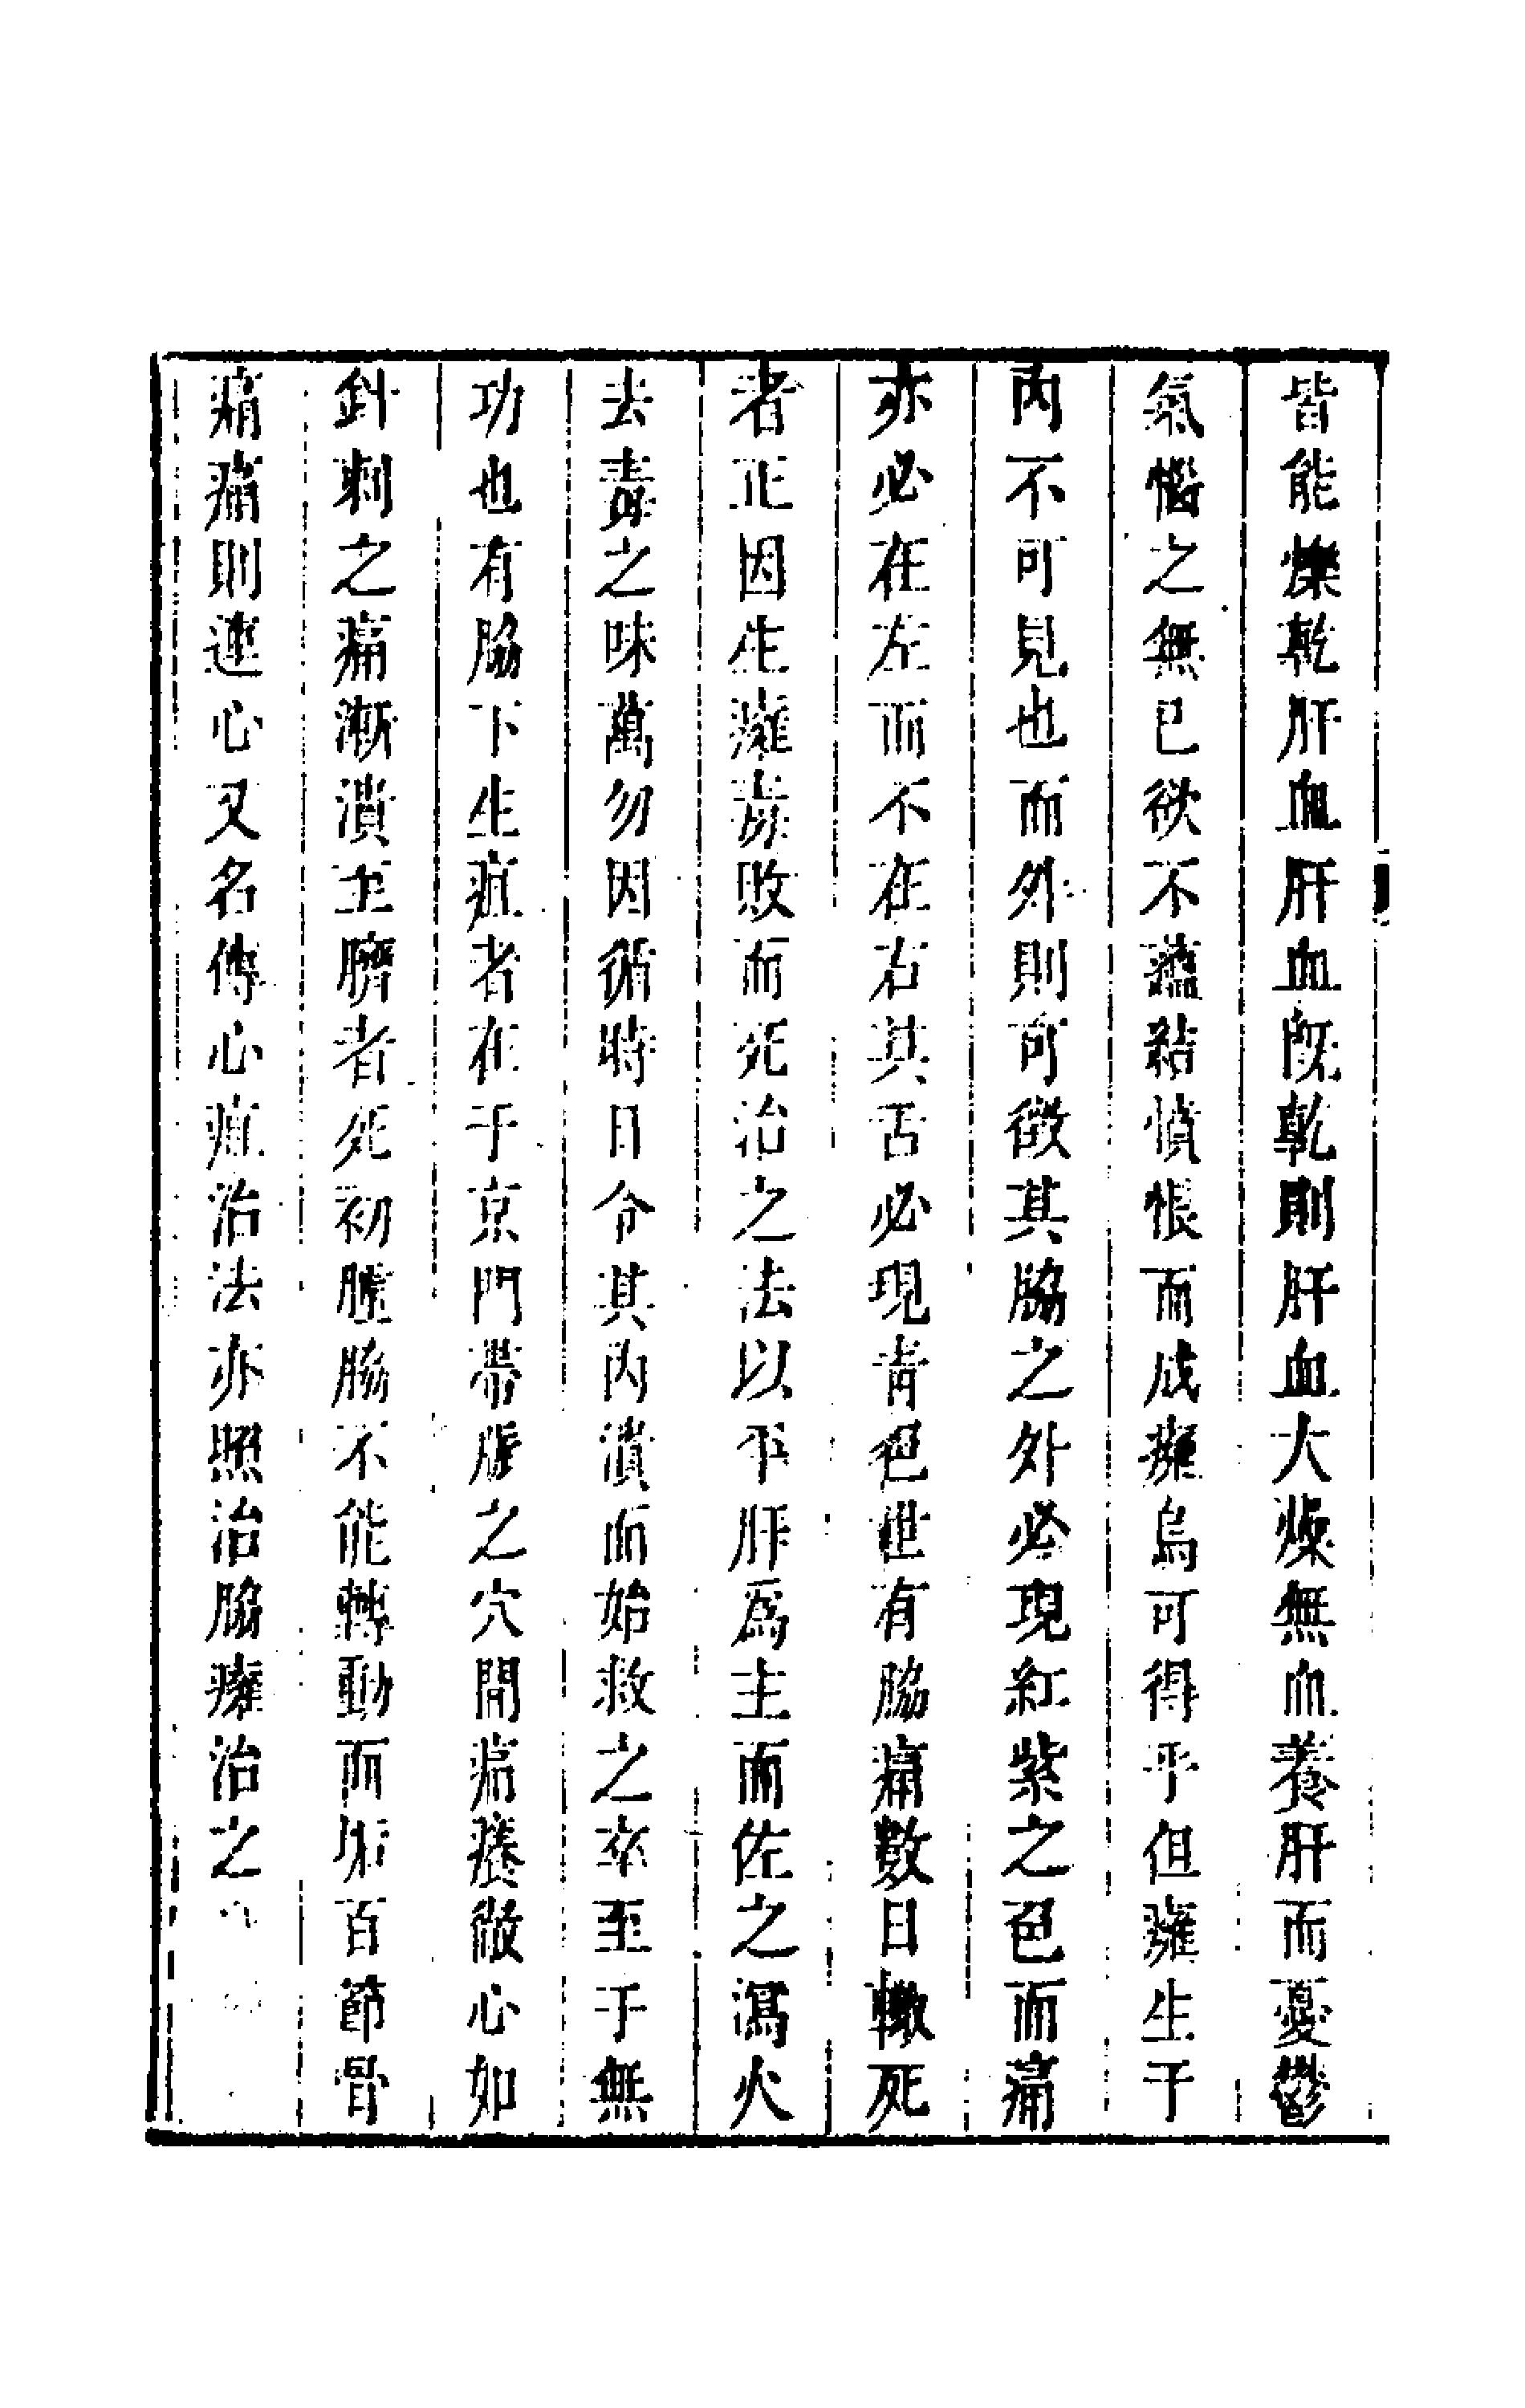 皆能爍乾肝血肝血既乾則肝血大燥無血養肝而憂鬱
氣惱之無已欲不蘊結憤恨而成癰烏可得乎但癰生于
內不可見也而外則可徵其脇之外必現紅紫之色而痛
亦必在左而不在右其舌必現青色世有脇痛數日輙死
者正因生癰毒敗而死治之法以平肝爲主而佐之瀉火
去毒之味萬勿因循時日令其內潰而始救之卒至于無
功也有脇下生疽者在于京門帶脈之穴開痛癢徹心如
針刺之痛漸潰至臍者死初腫脇不能轉動而坼百節骨
痛痛則連心又名傳心疽治法亦照治脇癰治之